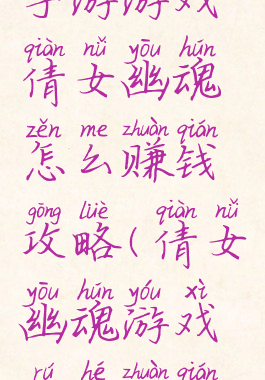 手游游戏
qiàn nǚ yōu hún
倩女幽魂
zěn me zhuàn qián
怎么赚钱
gōng lüè qiàn nǚ
攻略(倩女
yōu hún yóu xì
幽魂游戏
rú hé zhuàn qián